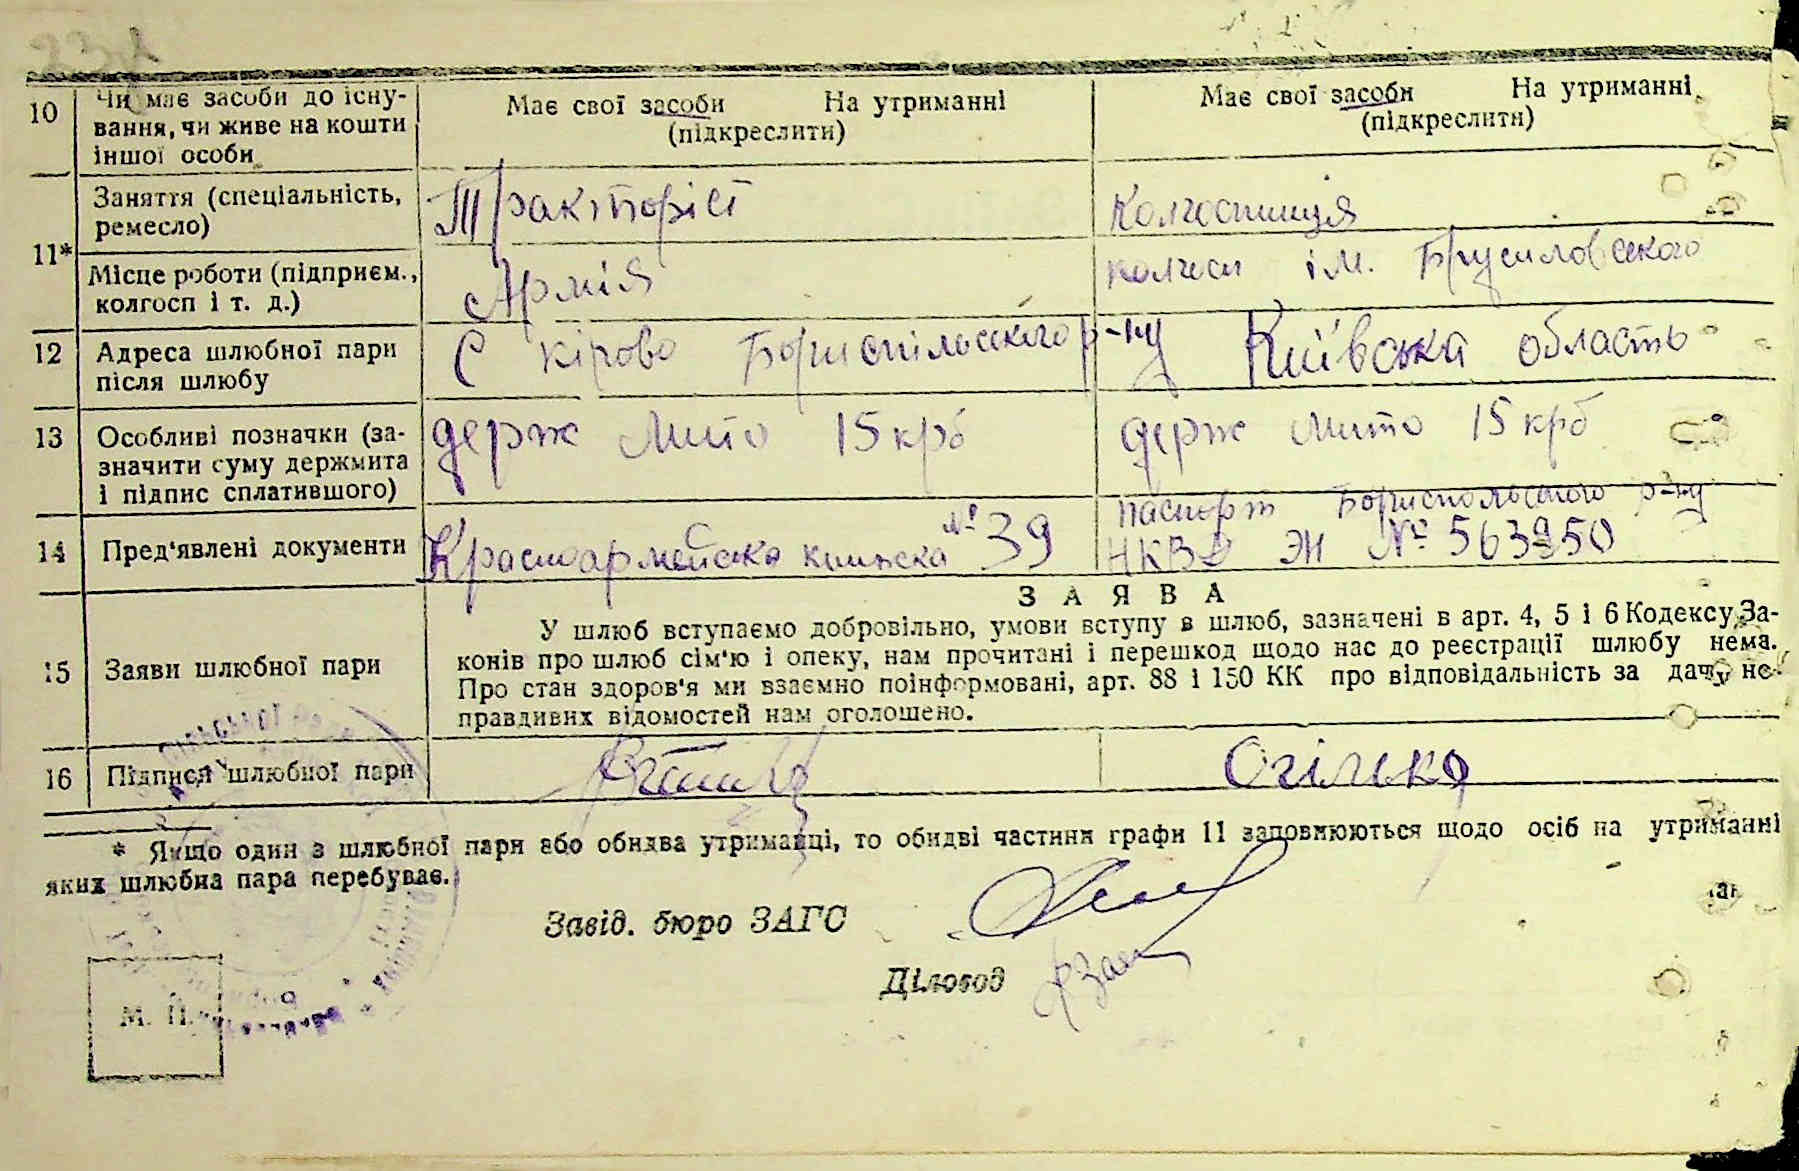 10 Чи має засоби до існу-
вання, чи живе на кошти
іншої особи
Має свої засоби На утриманні
(підкреслити)
Має свої засоби На утриманні
(підкреслити)
11*
Заняття (спеціальність,
ремесло)
Тракторіст
Колгоспниця
Місце роботи (підприєм.,
колгосп і т. д.)
Армія
колгосп ім. Брусиловського
12 Адреса шлюбної пари
після шлюбу
С Кірово Бориспільського р-ну Київська область
13 Особливі позначки (за-
значити суму держмита
і підпис сплатившого)
держ мито 15 крб
держ мито 15 крб
14 Пред'явлені документи
Красноармейска книжска № 39
паспорт Бориспольського р-ну
НКВД ЭН № 563950
15 Заяви шлюбної пари
ЗАЯВА
У шлюб вступаємо добровільно, умови вступу в шлюб, зазначені в арт. 4, 5 і 6 Кодексу За-
конів про шлюб сім'ю і опеку, нам прочитані і перешкод щодо нас до реєстрації шлюбу нема.
Про стан здоров'я ми взаємно поінформовані, арт. 88 і 150 КК про відповідальність за дачу не-
правдивих відомостей нам оголошено.
16 Підписи шлюбної пари
Огілько
* Якщо один з шлюбної пари або обидва утриманці, то обидві частини графи 11 заповнюються щодо осіб на утриманні
яких шлюбна пара перебуває.
Завід. бюро ЗАГС
Діловод
М. П.